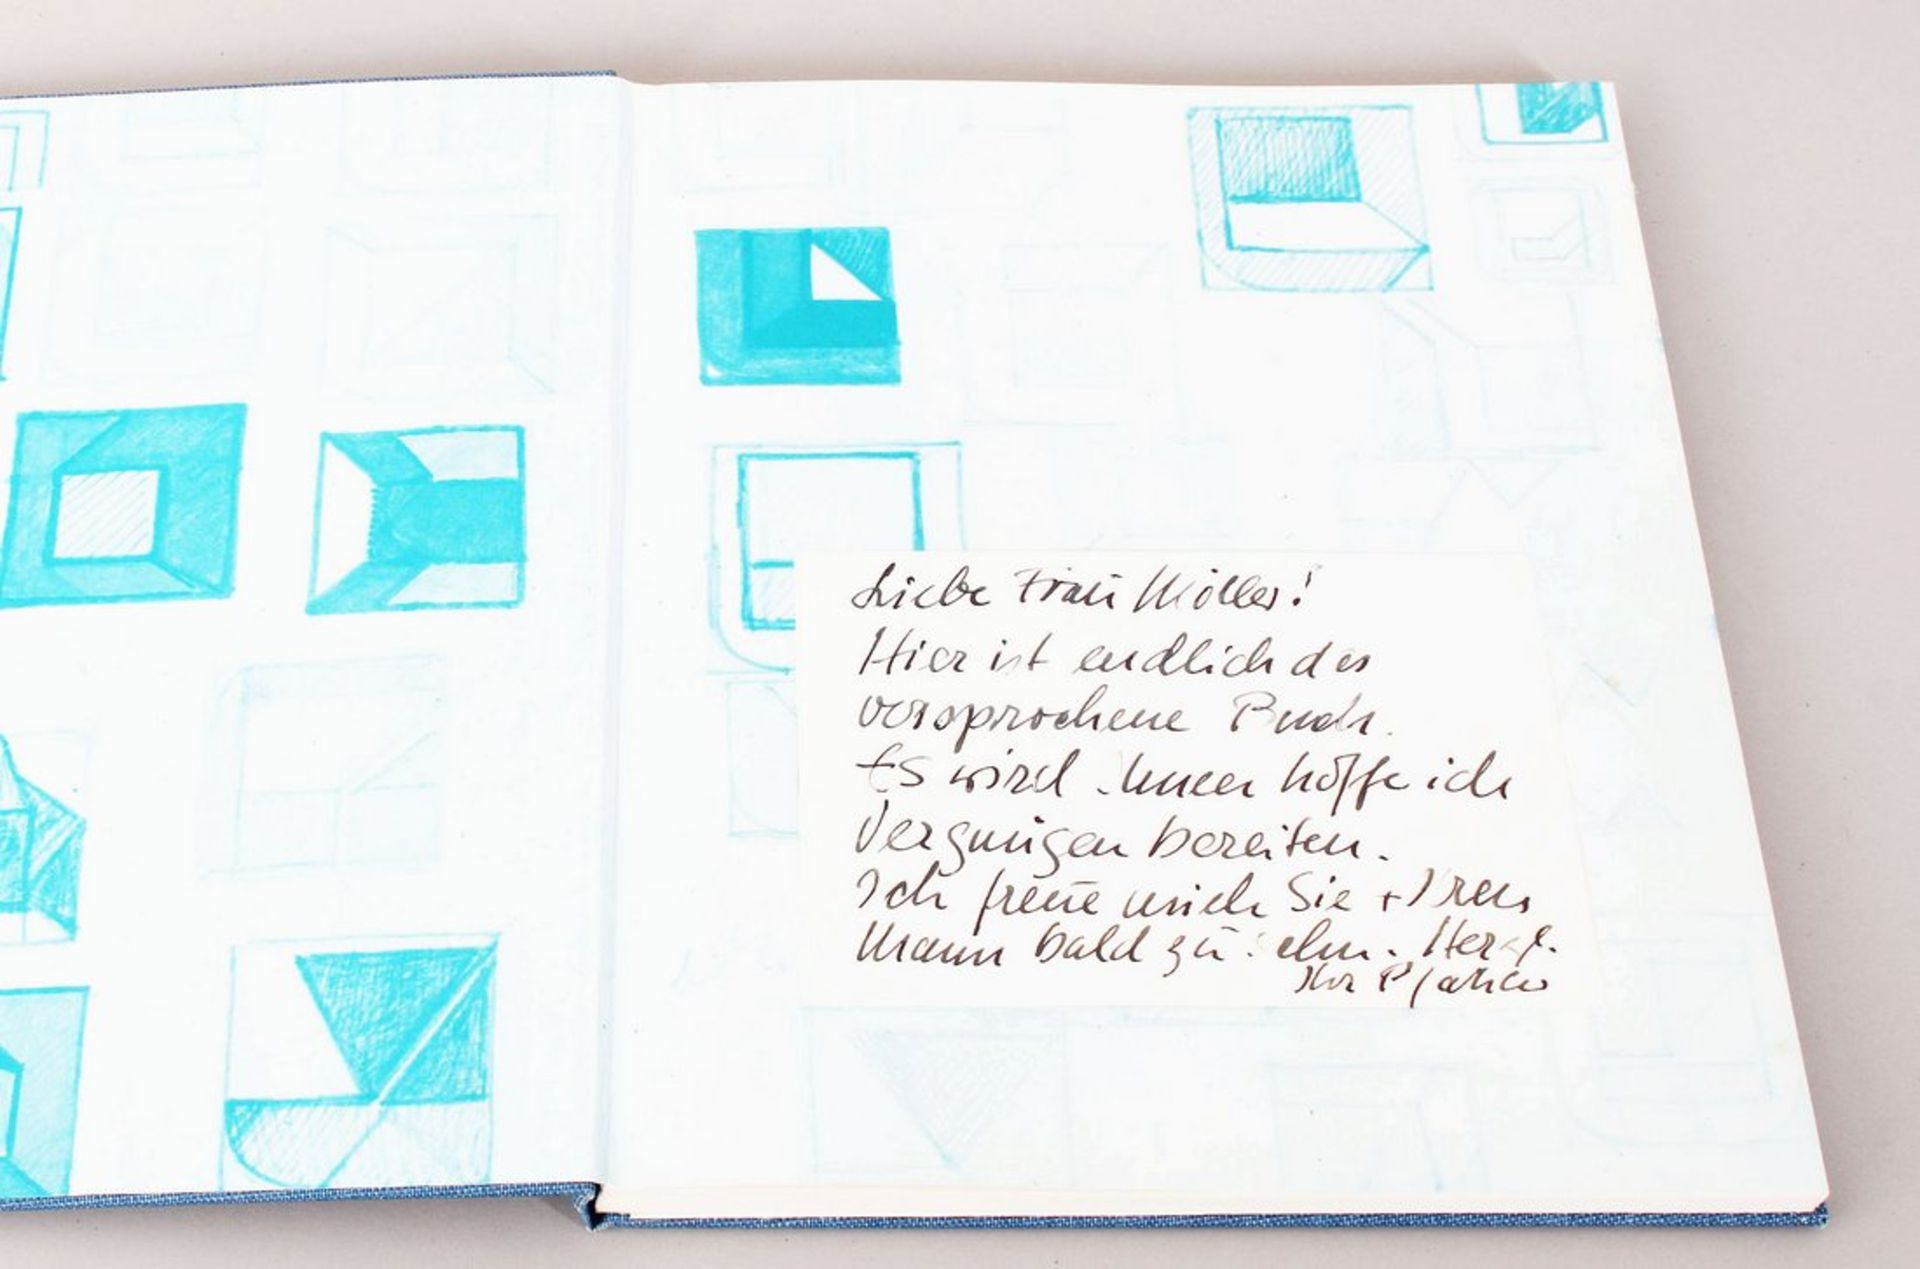 Liebe Frau Möller!
Hier ist endlich das
versprochene Buch.
Es wird Ihnen hoffe ich
Vergnügen bereiten.
Ich freue mich Sie + Ihren
Mann bald zu sehn. Herzl.
Ihr